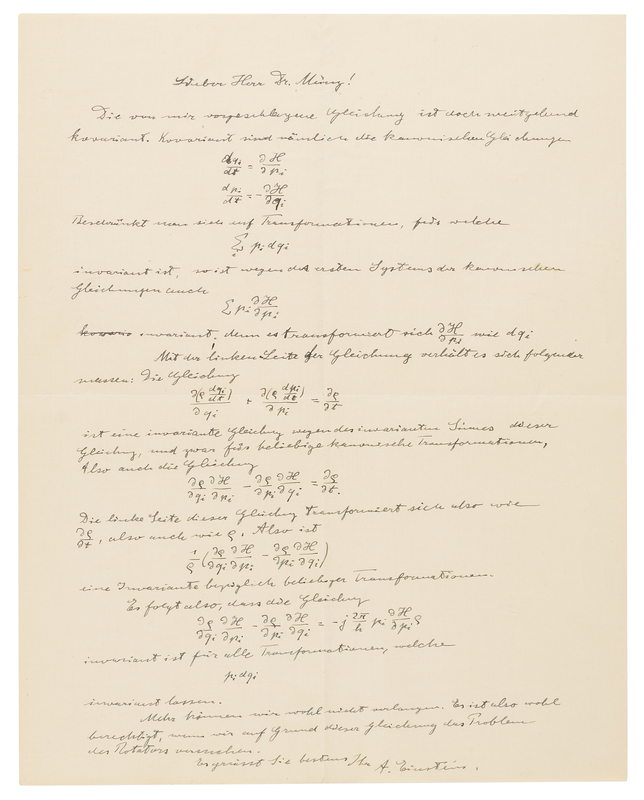 Lieber Herr Dr. Müntz!
Die von mir vorgeschlagene Gleichung ist doch weitgehend
kovariant. Kovariant sind nämlich die kanonischen Gleichungen
dqᵢ/dt = ∂H/∂pᵢ
dpᵢ/dt = −∂H/∂qᵢ
Beschränkt man sich auf Transformationen, für welche
∑ᵢ pᵢ dqᵢ
invariant ist, so ist wegen des ersten Systems der kanonischen
Gleichungen auch
∑ pᵢ ∂H/∂pᵢ
invariant, denn es transformiert sich ∂H/∂pᵢ wie dqᵢ
Mit der linken Seite der Gleichung verhält es sich folgender
massen: Die Gleichung
∂(ρ dqᵢ/dt)/∂qᵢ + ∂(ρ dpᵢ/dt)/∂pᵢ = ∂ρ/∂t
ist eine invariante Gleichung wegen des invarianten Sinnes dieser
Gleichung, und zwar für beliebige kanonische Transformationen,
Also auch die Gleichung
∂ρ/∂qᵢ ∂H/∂pᵢ − ∂ρ/∂pᵢ ∂H/∂qᵢ = ∂ρ/∂t.
Die linke Seite dieser Gleichung transformiert sich also wie
∂ρ/∂t, also auch wie ρ. Also ist
1/ρ (∂ρ/∂qᵢ ∂H/∂pᵢ − ∂ρ/∂pᵢ ∂H/∂qᵢ)
eine Invariante bezüglich beliebiger Transformationen.
Es folgt also, dass die Gleichung
∂ρ/∂qᵢ ∂H/∂pᵢ − ∂ρ/∂pᵢ ∂H/∂qᵢ = −j 2π/h pᵢ ∂H/∂pᵢ ρ
invariant ist für alle Transformationen, welche
pᵢ dqᵢ
invariant lassen.
Mehr können wir wohl nicht verlangen. Es ist also wohl
berechtigt, wenn wir auf Grund dieser Gleichung das Problem
des Rotators
Es grüsst Sie bestens Ihr A. Einstein.